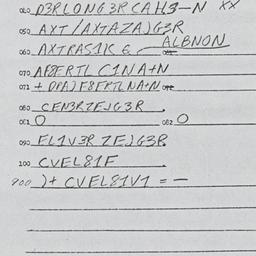 040 D3RLONG3RCAH3-N XX
050 AXT/AXTAZAJG3R
060 AXTRAS1K E ALBNON
070 AF8FRTL C1NA+N
071 + DPAJF8FRTLNA+N
080 CEN3RZEJG3R
081 O 082 O
090 EL1V3R ZEJG3R
100 CVEL81F
900 )+ CVEL81V1 = -